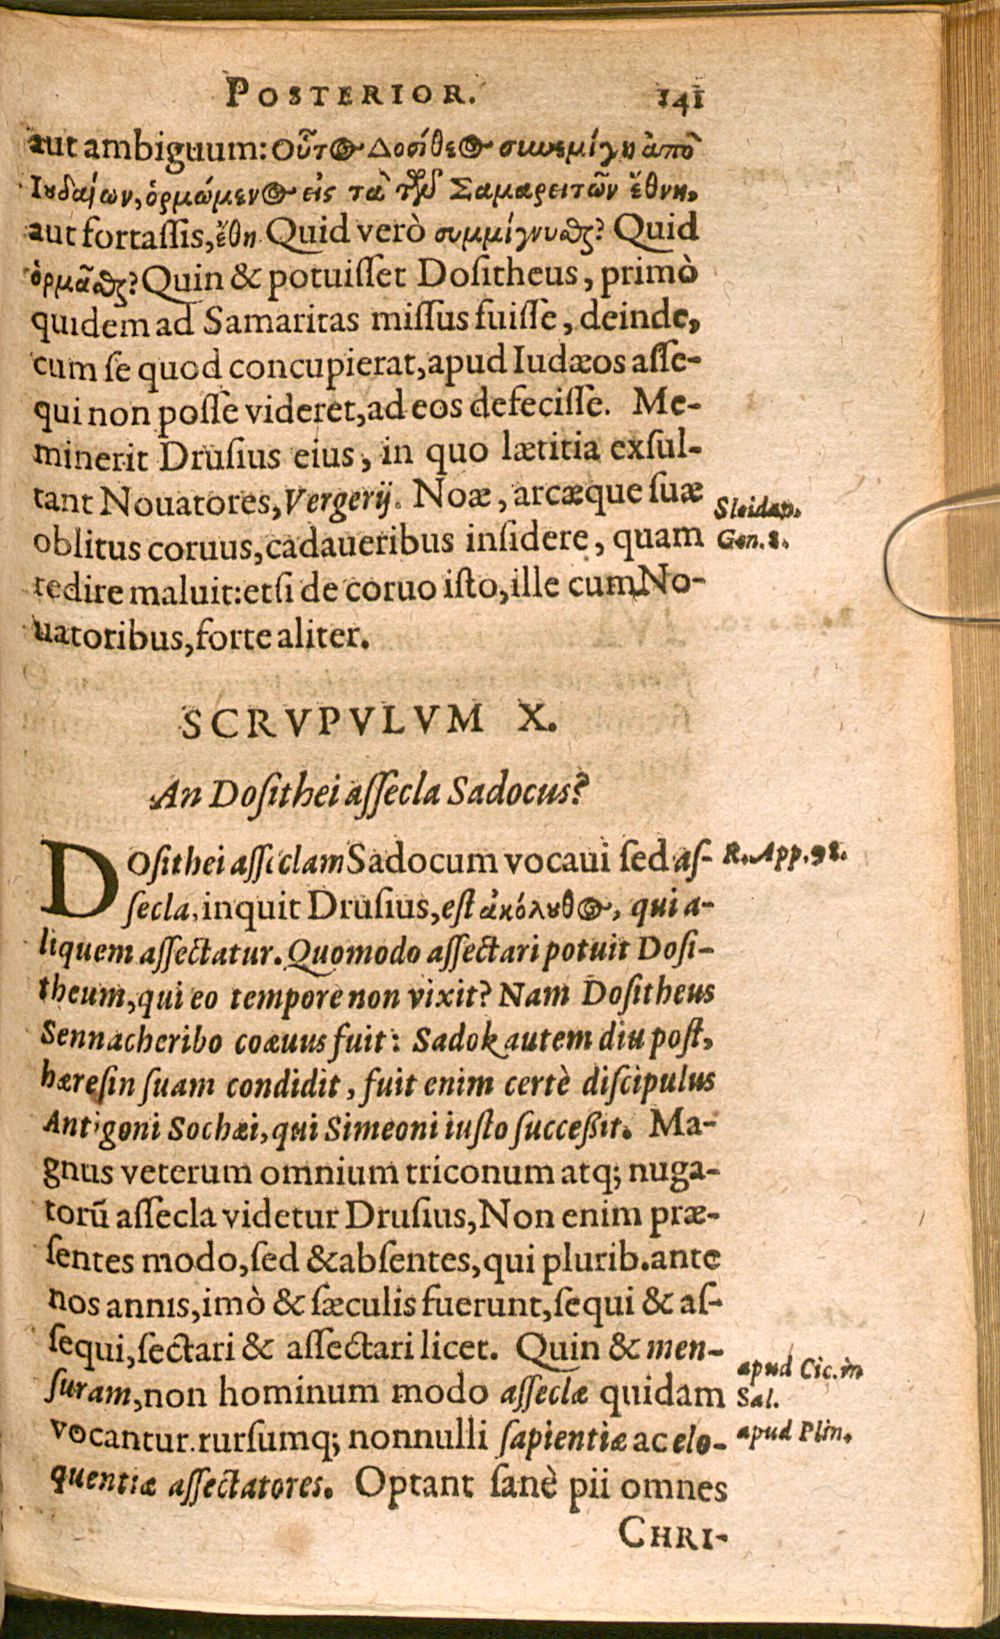 POSTERIOR. 141
aut ambiguum: Οὗτος Δοσίθεος συνεμίγη ἀπὸ
Ιουδαίων, ὁρμώμενος εἰς τὰ τῶν Σαμαρειτῶν ἔθνη,
aut fortassis, ἔθη. Quid verò συμμίγνυσθαι? Quid
ὁρμᾶσθαι? Quin & potuiſſet Doſitheus, primò
quidem ad Samaritas miſſus fuiſſe, deinde,
cum ſe quod concupierat, apud Iudæos aſſe-
qui non poſſe videret, ad eos defeciſſe. Me-
minerit Druſius eius, in quo lætitia exſul-
tant Nouatores, Vergerij. Noæ, arcæque ſuæ
Sleidan.
oblitus coruus, cadaueribus inſidere, quam
Gen. 8.
redire maluit: etſi de coruo iſto, ille cum No-
uatoribus, forte aliter.
SCRVPVLVM X.
An Doſithei aſſecla Sadocus?
DOſithei aſſeclam Sadocum vocaui ſed aſ-
R. App. 98.
ſecla, inquit Druſius, eſt ἀκόλουθος, qui a-
liquem aſſectatur. Quomodo aſſectari potuit Doſi-
theum, qui eo tempore non vixit? Nam Doſitheus
Sennacheribo coæuus fuit: Sadok autem diu poſt,
hæreſin ſuam condidit, fuit enim certè diſcipulus
Antigoni Sochæi, qui Simeoni iuſto ſucceßit. Ma-
gnus veterum omnium triconum atq; nuga-
torũ aſſecla videtur Druſius, Non enim præ-
ſentes modo, ſed & abſentes, qui plurib. ante
nos annis, imò & ſæculis fuerunt, ſequi & aſ-
ſequi, ſectari & aſſectari licet. Quin & men-
apud Cic. in
ſuram, non hominum modo aſſeclæ quidam
Sal.
vocantur. rurſumq; nonnulli ſapientiæ ac elo-
apud Plin.
quentiæ aſſectatores. Optant ſanè pii omnes
CHRI-